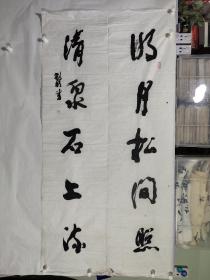 明月松间照
清泉石上流